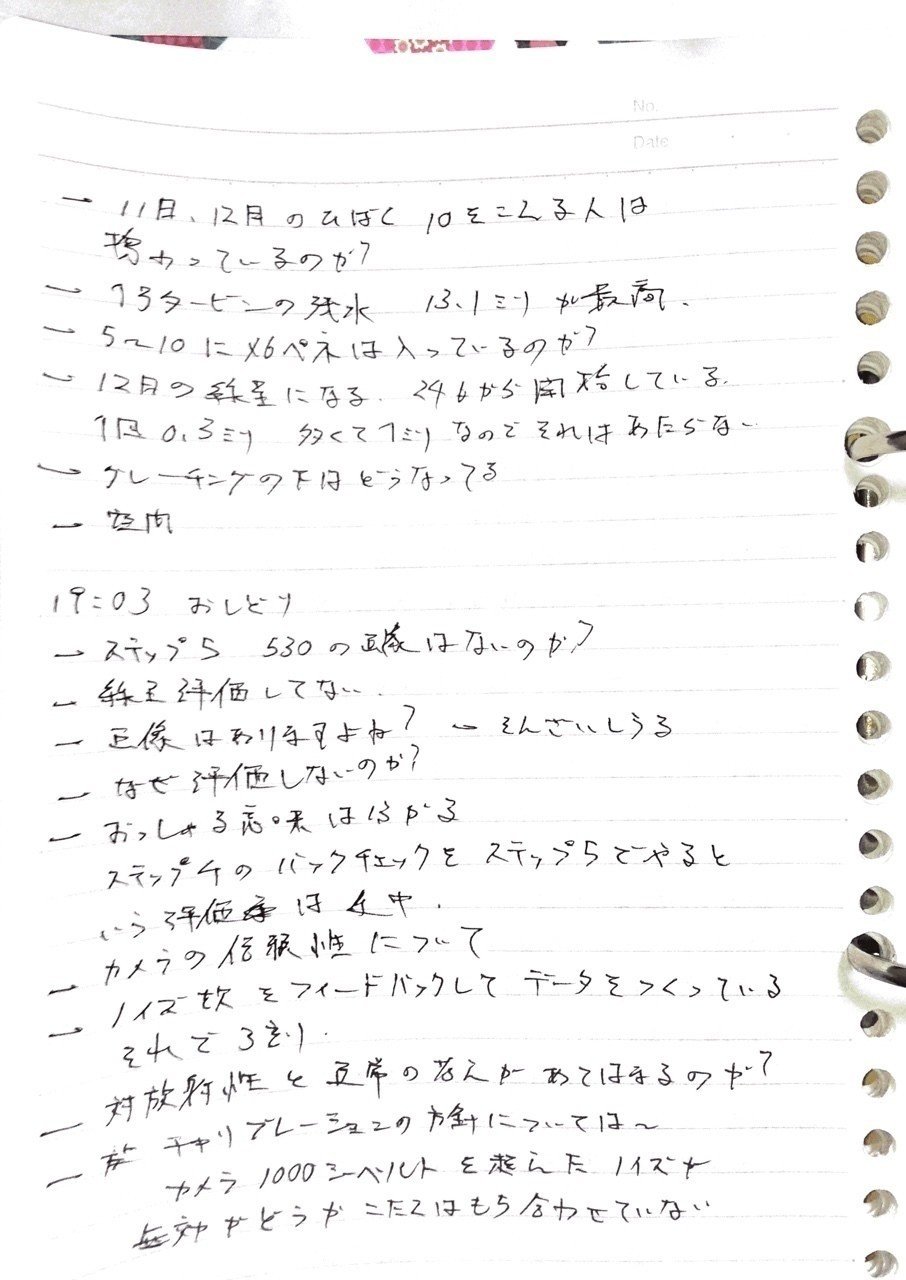 No.
Date
- 11月、12月のひばく 10をこえる人は
増わっているのか?
- 1号タービンの残水 13.1ミリが最高.
- 5~10にX6ペネは入っているのか?
- 12月の線量になる. 24日から開始している.
1回 0.3ミリ 多くて1ミリなのでそれはあたらない
- グレーチングの下はどうなってる
- 空間
19:03 おしどり
- ステップ5 530の画像はないのか?
- 線量評価してない.
- 画像はありますよね? - そんざいしうる
- なぜ評価しないのか?
- おっしゃる意味は分かる
ステップ4のバックチェックをステップ5でやると
いう評価は 途中.
- カメラの信頼性について
- ノイズ数をフィードバックしてデータをつくっている
それで3割り.
- 対放射性と 通常の考えがあてはまるのか?
- キャリブレーションの方針については~
カメラ 1000シーベルトを超えたノイズが
無効かどうか こたえはもち合わせていない